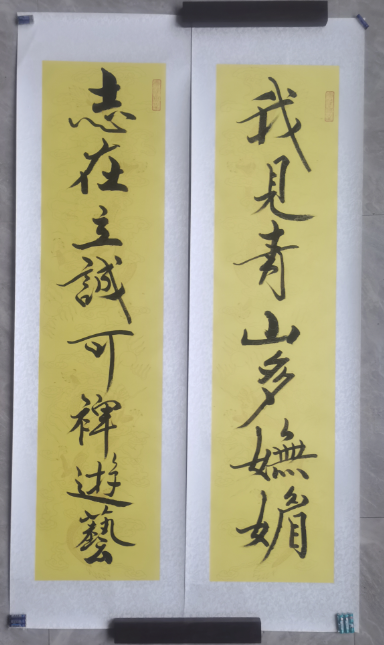 我見青山多嫵媚
志在立誠可裨遊藝